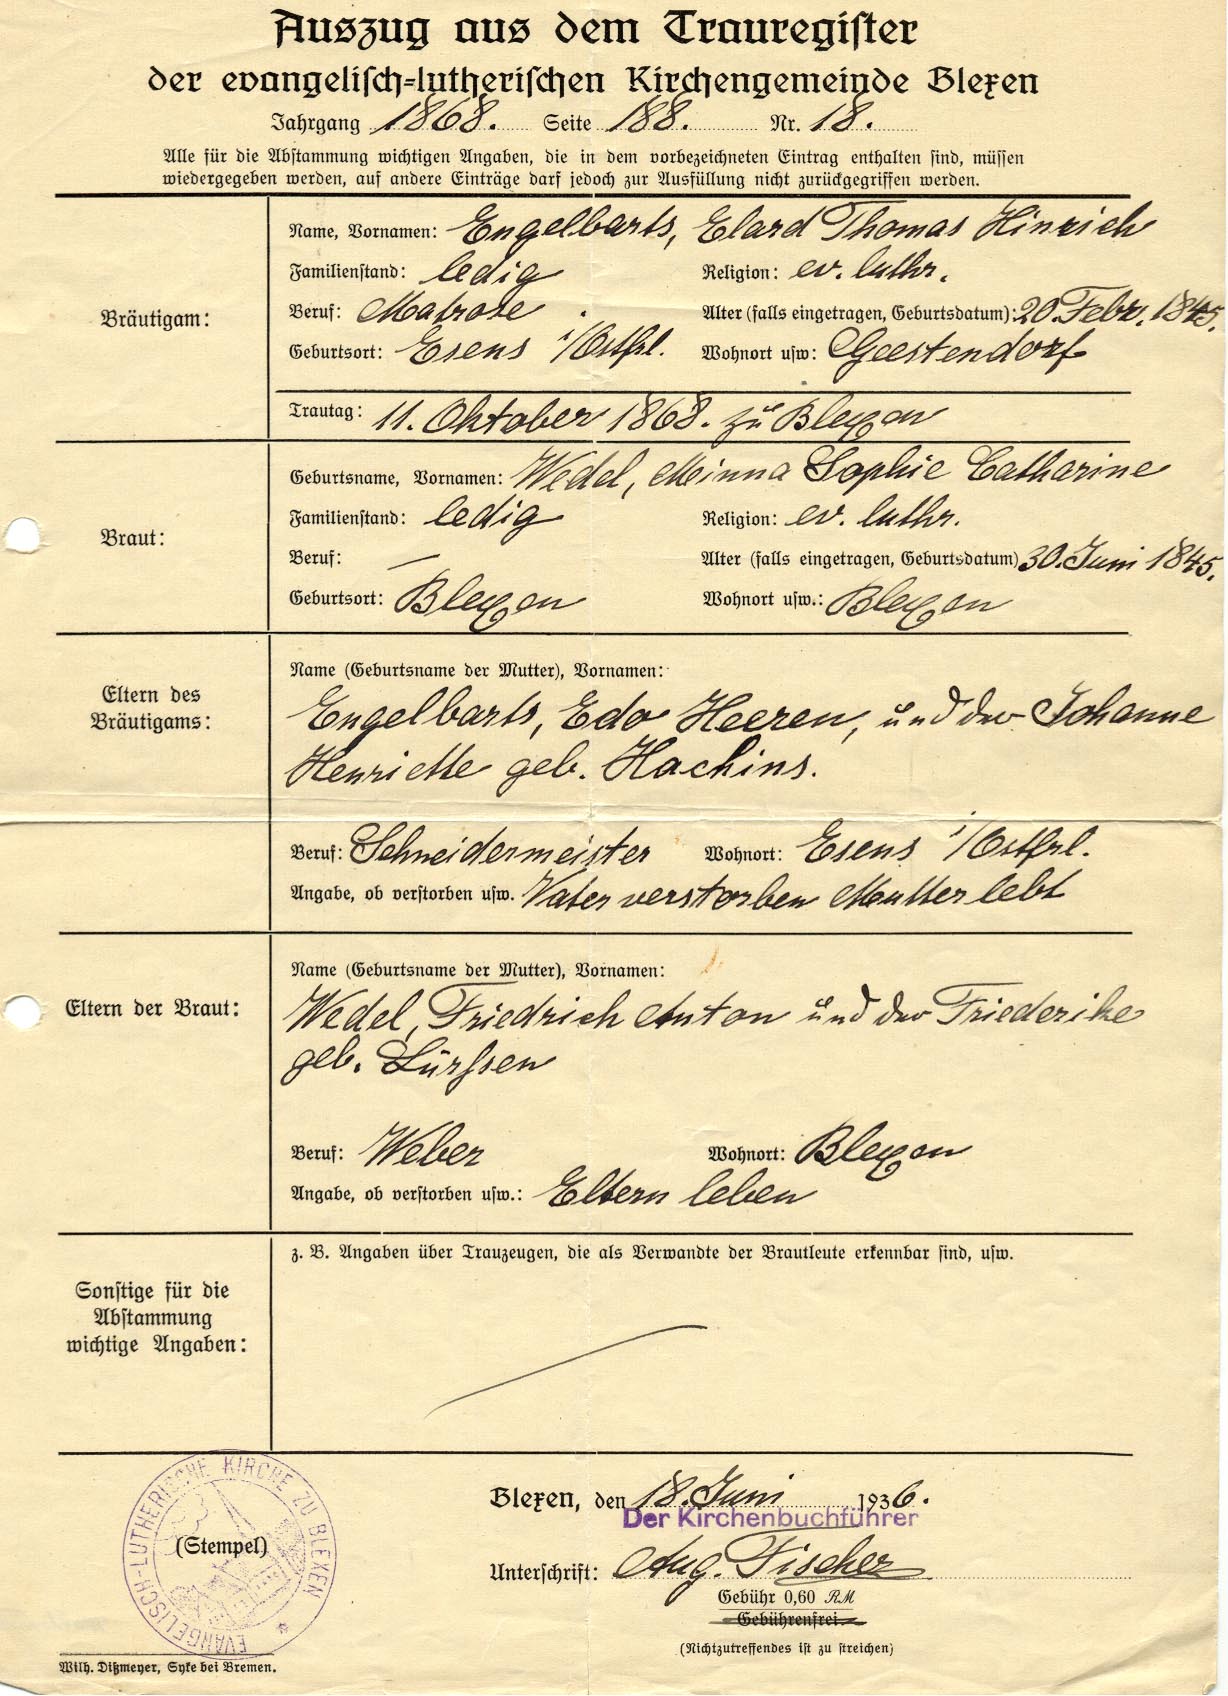 Auszug aus dem Trauregister
der evangelisch-lutherischen Kirchengemeinde Blexen
Jahrgang 1868. Seite 188. Nr. 18.
Alle für die Abstammung wichtigen Angaben, die in dem vorbezeichneten Eintrag enthalten sind, müssen
wiedergegeben werden, auf andere Einträge darf jedoch zur Ausfüllung nicht zurückgegriffen werden.
Bräutigam:
Name, Vornamen: Engelbarts, Elard Thomas Hinrich
Familienstand: ledig Religion: ev. luthr.
Beruf: Matrose Alter (falls eingetragen, Geburtsdatum): 20. Febr. 1845.
Geburtsort: Esens i/Ostfrl. Wohnort usw: Geestendorf
Trautag: 11. Oktober 1868. zu Blexen
Braut:
Geburtsname, Vornamen: Wedel, Minna Sophie Catharine
Familienstand: ledig Religion: ev. luthr.
Beruf: — Alter (falls eingetragen, Geburtsdatum) 30. Juni 1845.
Geburtsort: Blexen Wohnort usw.: Blexen
Eltern des
Bräutigams:
Name (Geburtsname der Mutter), Vornamen:
Engelbarts, Edo Heeren, und der Johanne
Henriette geb. Hachins.
Beruf: Schneidermeister Wohnort: Esens i/Ostfrl.
Angabe, ob verstorben usw. Vater verstorben Mutter lebt
Eltern der Braut:
Name (Geburtsname der Mutter), Vornamen:
Wedel, Friedrich Anton und der Friederike
geb. Lürssen
Beruf: Weber Wohnort: Blexen
Angabe, ob verstorben usw.: Eltern leben
Sonstige für die
Abstammung
wichtige Angaben:
z. B. Angaben über Trauzeugen, die als Verwandte der Brautleute erkennbar sind, usw.
EVANGELISCH-LUTHERISCHE KIRCHE ZU BLEXEN
(Stempel)
Blexen, den 18. Juni 1936.
Der Kirchenbuchführer
Unterschrift: Aug. Fischer
Gebühr 0,60 RM
Gebührenfrei
(Nichtzutreffendes ist zu streichen)
Wilh. Dißmeyer, Syke bei Bremen.